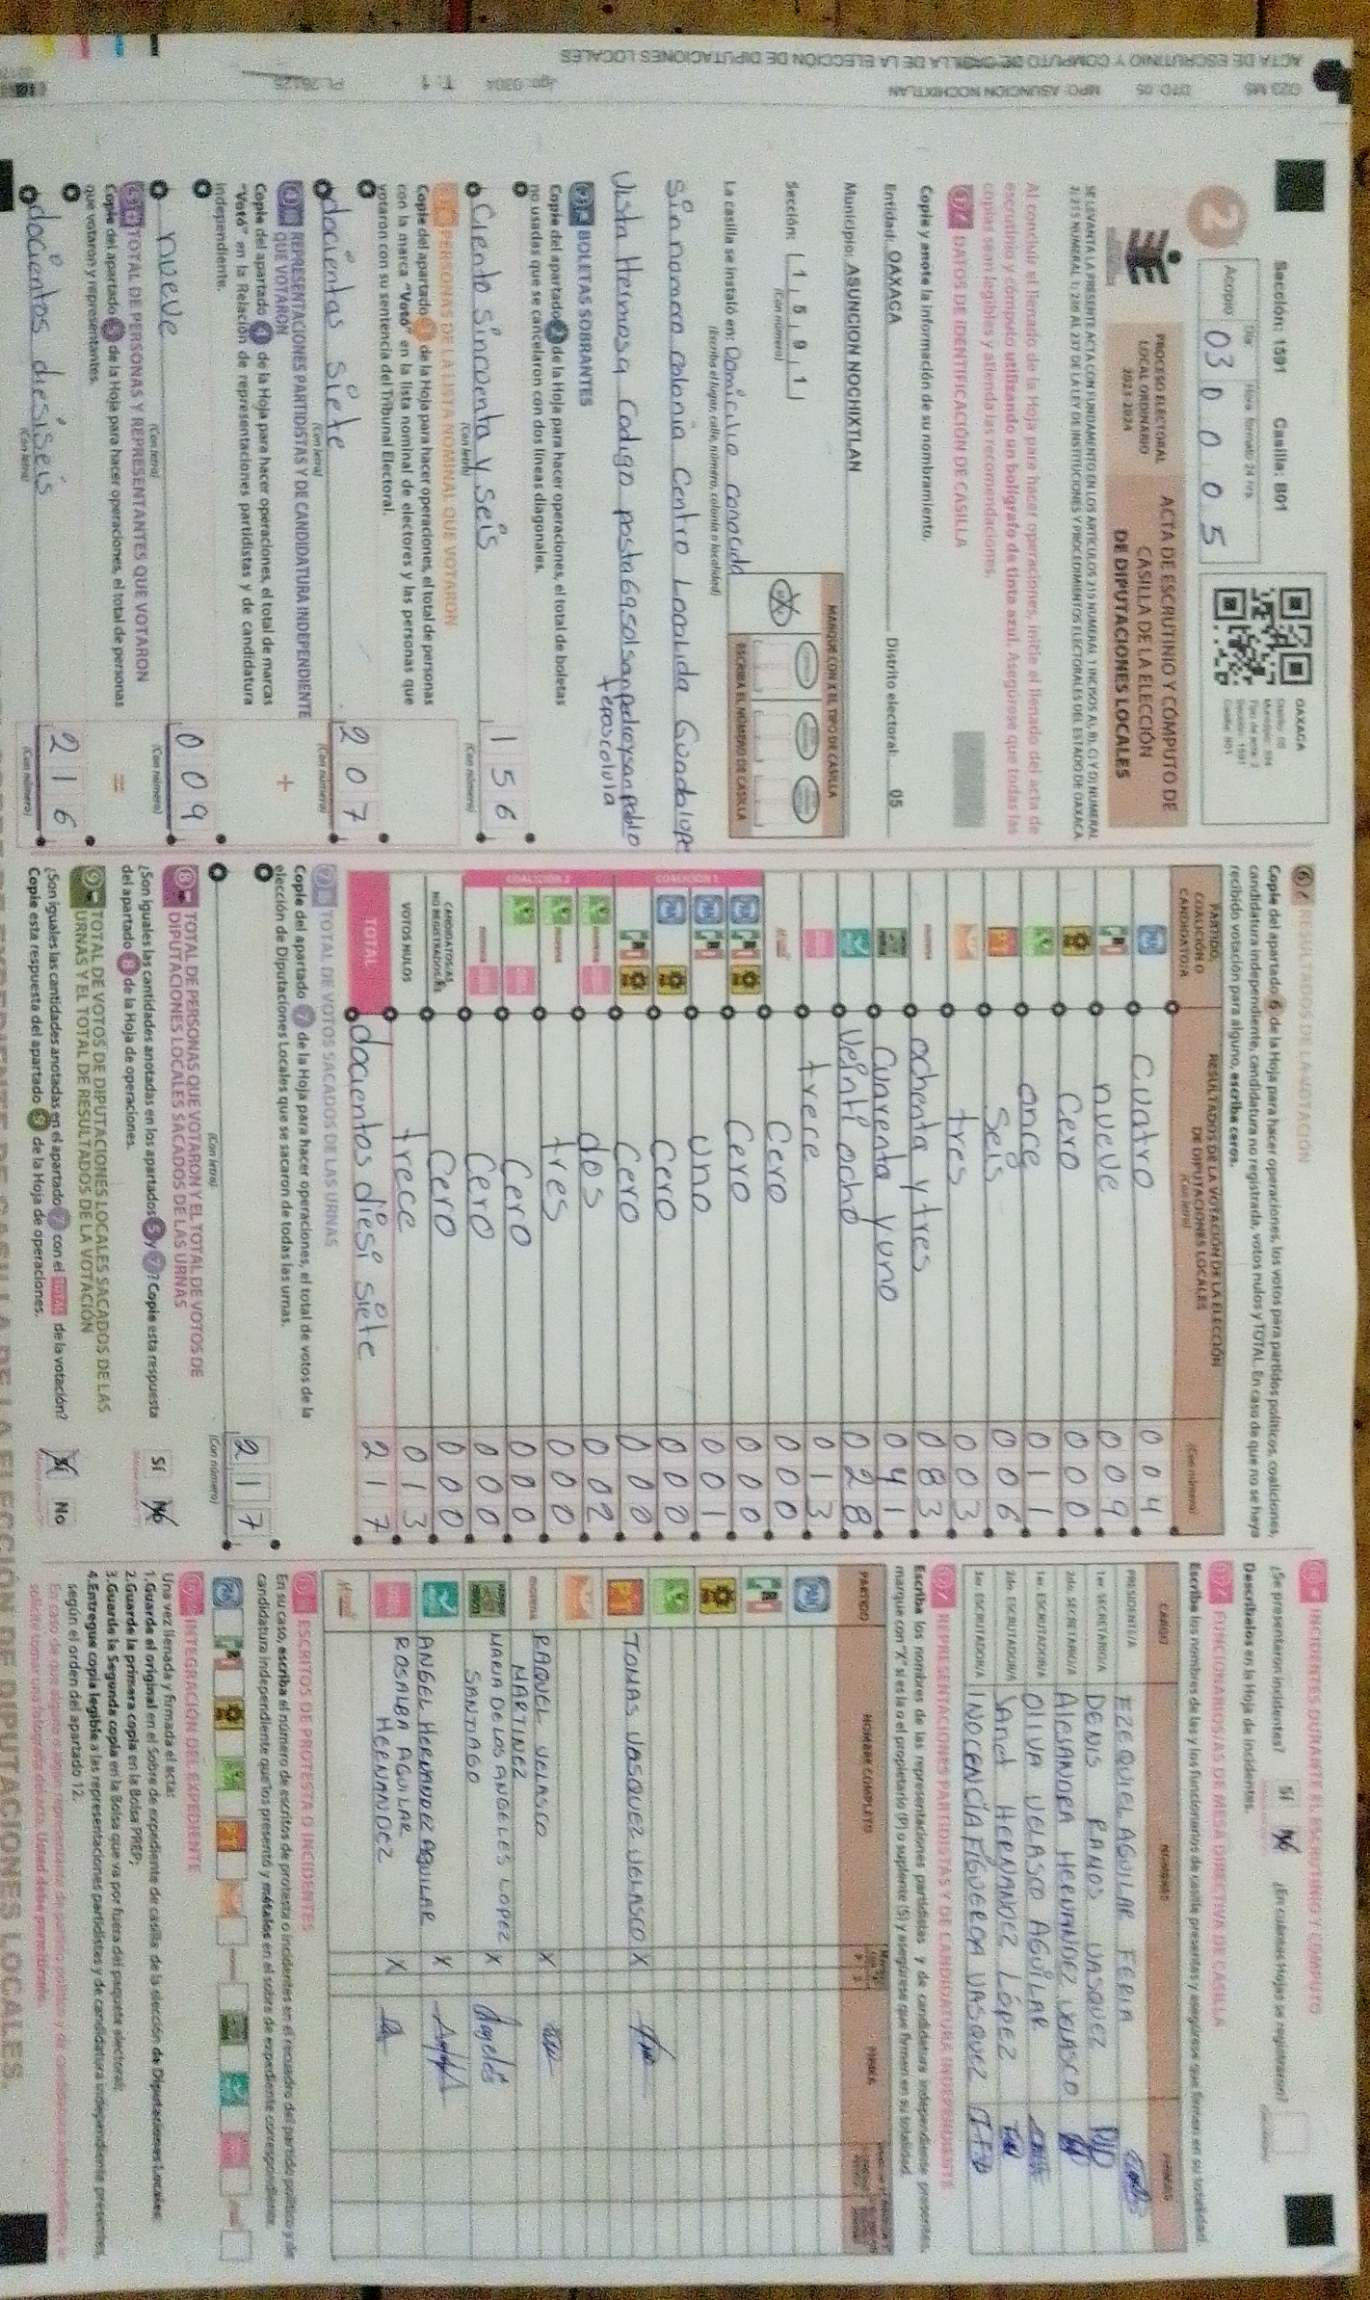 Sección: 1591 Casilla: B01
OAXACA
2
Acopio
Día
Hora formato 24 hrs.
03 00 05
PROCESO ELECTORAL
LOCAL ORDINARIO
2023-2024
ACTA DE ESCRUTINIO Y CÓMPUTO DE
CASILLA DE LA ELECCIÓN
DE DIPUTACIONES LOCALES
Al concluir el llenado de la Hoja para hacer operaciones, inicie el llenado del acta de
escrutinio y cómputo utilizando un bolígrafo de tinta azul. Asegúrese que todas las
copias sean legibles y atienda las recomendaciones.
DATOS DE IDENTIFICACIÓN DE CASILLA
Copie y anote la información de su nombramiento.
Entidad: OAXACA Distrito electoral 05
Municipio: ASUNCION NOCHIXTLAN
MARQUE CON X EL TIPO DE CASILLA
ESCRIBA EL NÚMERO DE CASILLA
Sección: 1 5 9 1
(Con número)
La casilla se instaló en: Domicilio conocido
(Escriba el lugar, calle, número, colonia o localidad)
sin nomero colonia Centro Localida Guadalope
Vista Hermosa Codigo posta 69.sol san pedro y san pablo
teposcolula
BOLETAS SOBRANTES
Copie del apartado 2 de la Hoja para hacer operaciones, el total de boletas
no usadas que se cancelaron con dos líneas diagonales.
Ciento sincuenta y seis 156
(Con letra) (Con número)
PERSONAS DE LA LISTA NOMINAL QUE VOTARON
Copie del apartado 3 de la Hoja para hacer operaciones, el total de personas
con la marca "Votó" en la lista nominal de electores y las personas que
votaron con su sentencia del Tribunal Electoral.
docientas siete 207
(Con letra) (Con número)
REPRESENTACIONES PARTIDISTAS Y DE CANDIDATURA INDEPENDIENTE
QUE VOTARON
Copie del apartado 4 de la Hoja para hacer operaciones, el total de marcas
"Votó" en la Relación de representaciones partidistas y de candidatura
independiente.
+
nueve 009
(Con letra) (Con número)
TOTAL DE PERSONAS Y REPRESENTANTES QUE VOTARON
Copie del apartado 5 de la Hoja para hacer operaciones, el total de personas
que votaron y representantes.
=
docientos diesiseis 216
(Con letra) (Con número)
6 RESULTADOS DE LA VOTACIÓN
Copie del apartado 6 de la Hoja para hacer operaciones, los votos para partidos políticos, coaliciones,
candidatura independiente, candidatura no registrada, votos nulos y TOTAL. En caso de que no se haya
recibido votación para alguno, escriba ceros.
PARTIDO,
COALICIÓN O
CANDIDATO/A
RESULTADOS DE LA VOTACIÓN DE LA ELECCIÓN
DE DIPUTACIONES LOCALES
(Con letra)
(Con número)
PAN cuatro 004
PRI nueve 009
Cero 000
once 011
PT Seis 006
tres 003
morena ochenta y tres 083
Cunrenta y uno 041
Veinti ocho 028
trece 013
Cero 000
COALICIÓN 1
PAN PRI Cero 000
PAN PRI uno 001
PAN Cero 000
PRI Cero 000
COALICIÓN 2
dos 002
tres 000
Cero 000
Cero 000
CANDIDATOS/AS
NO REGISTRADOS/AS Cero 000
VOTOS NULOS trece 013
TOTAL docientos diesi siete 217
7 TOTAL DE VOTOS SACADOS DE LAS URNAS
Copie del apartado 7 de la Hoja para hacer operaciones, el total de votos de la
elección de Diputaciones Locales que se sacaron de todas las urnas.
217
(Con letra) (Con número)
8 TOTAL DE PERSONAS QUE VOTARON Y EL TOTAL DE VOTOS DE
DIPUTACIONES LOCALES SACADOS DE LAS URNAS
¿Son iguales las cantidades anotadas en los apartados 5 y 7? Copie esta respuesta
del apartado 8 de la Hoja de operaciones.
Sí No
9 TOTAL DE VOTOS DE DIPUTACIONES LOCALES SACADOS DE LAS
URNAS Y EL TOTAL DE RESULTADOS DE LA VOTACIÓN
¿Son iguales las cantidades anotadas en el apartado 7 con el TOTAL de la votación?
Copie esta respuesta del apartado 9 de la Hoja de operaciones.
Sí No
INCIDENTES DURANTE EL ESCRUTINIO Y CÓMPUTO
¿Se presentaron incidentes? Sí No ¿En cuántas Hojas se registraron?
Descríbalos en la Hoja de incidentes.
FUNCIONARIOS/AS DE MESA DIRECTIVA DE CASILLA
Escriba los nombres de las y los funcionarios de casilla presentes y asegúrese que firmen en su totalidad.
CARGO NOMBRES FIRMAS
PRESIDENTE/A EZEQUIEL AGUILAR FERIA
1er. SECRETARIO/A DENIS RAMOS VASQUEZ
2do. SECRETARIO/A ALEJANDRA HERNANDEZ VELASCO
1er. ESCRUTADOR/A OLIVA VELASCO AGUILAR
2do. ESCRUTADOR/A Sandl HERNANDEZ LÓPEZ
3er. ESCRUTADOR/A INOCENCIA FIGUEROA VASQUEZ
REPRESENTACIONES PARTIDISTAS Y DE CANDIDATURA INDEPENDIENTE
Escriba los nombres de las representaciones partidistas y de candidatura independiente presentes,
marque con "X" si es la o el propietario (P) o suplente (S) y asegúrese que firmen en su totalidad.
PARTIDO NOMBRE COMPLETO FIRMA
PAN
PRI
PT TOMAS VASQUEZ VELASCO X
morena RAQUEL VELASCO
MARTINEZ X
MARIA DE LOS ANGELES LOPEZ
SANTIAGO X Angeles
ANGEL HERNANDEZ AGUILAR X
ROSALBA AGUILAR
HERNANDEZ X
ESCRITOS DE PROTESTA O INCIDENTES
En su caso, escriba el número de escritos de protesta o incidentes en el recuadro del partido político y de
candidatura independiente que los presentó y métalos en el sobre de expediente correspondiente.
INTEGRACIÓN DEL EXPEDIENTE
Una vez llenada y firmada el acta:
1.Guarde el original en el Sobre de expediente de casilla de la elección de Diputaciones Locales;
2.Guarde la primera copia en la Bolsa PREP;
3.Guarde la Segunda copia en la Bolsa que va por fuera del paquete electoral;
4.Entregue copia legible a las representaciones partidistas y de candidatura independiente presentes,
según el orden del apartado 12.
023 MS DTO: 05 MPO: ASUNCION NOCHIXTLAN
T: 1
ACTA DE ESCRUTINIO Y COMPUTO DE CASILLA DE LA ELECCIÓN DE DIPUTACIONES LOCALES